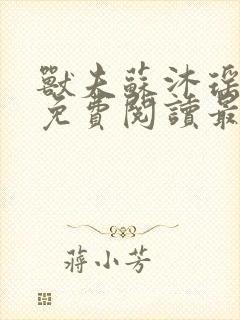 獸夫蘇沐瑶
免費閱讀最
蔣小芳